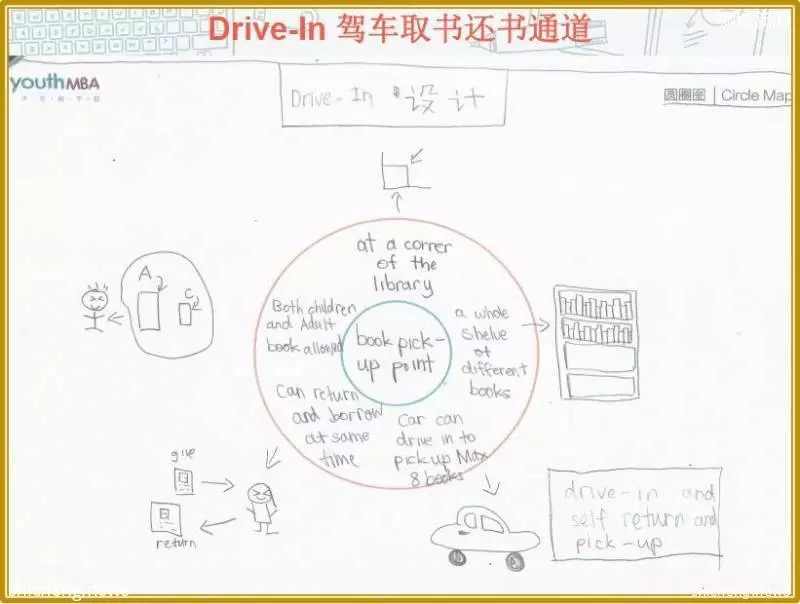 Drive-In 驾车取书还书通道
youthMBA
Drive-In 设计
圆圈图 | Circle Map
at a corner
of the
library
Both children
and Adult
book allowed
book pick-
up point
a whole
shelve
of
different
books
Can return
and borrow
at same
time
Car can
drive in to
pick up Max
8 books
A
C
give
return
drive-in and
self return and
pick-up